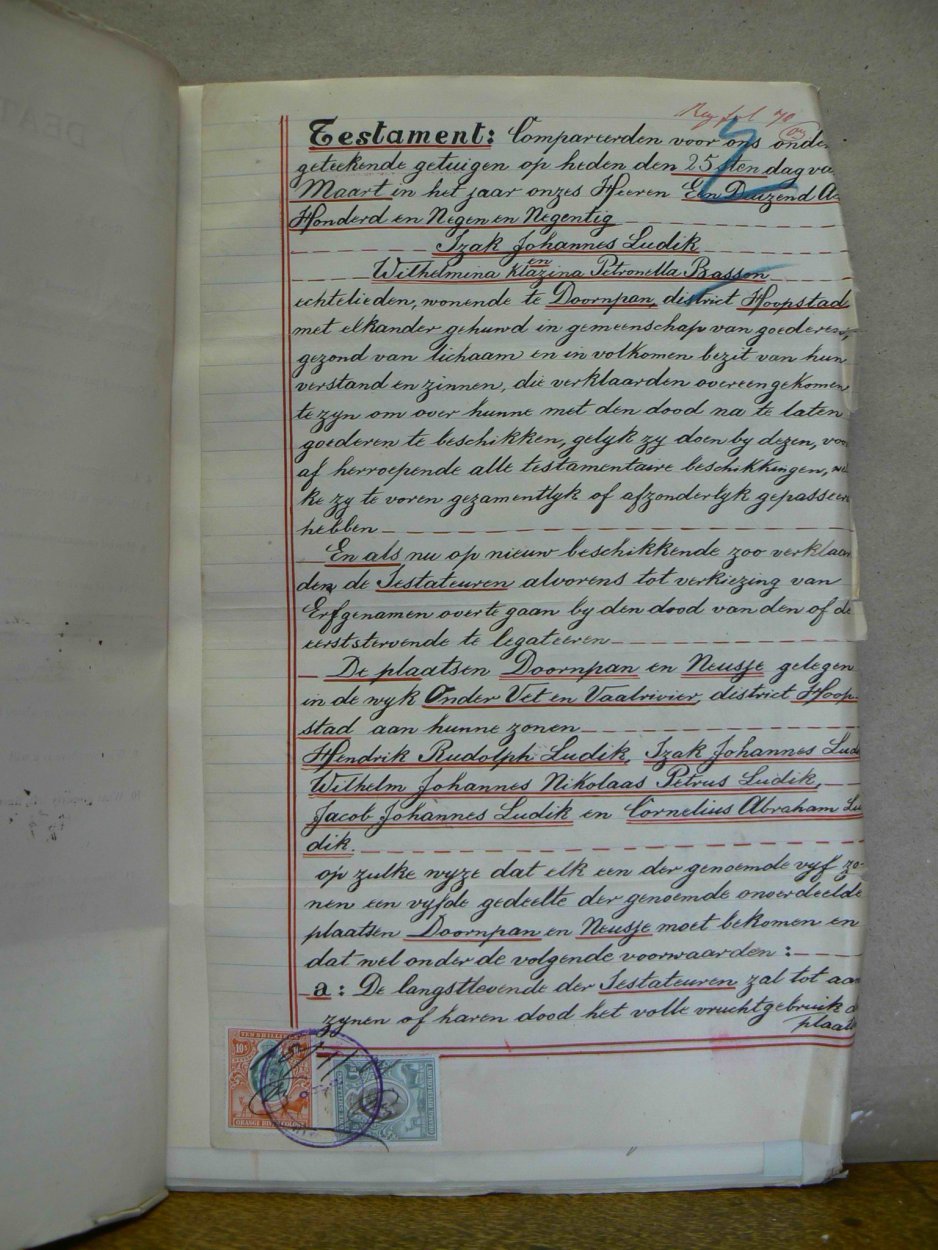 Testament: Compareerden voor ons onder
geteekende getuigen op heden den 25sten dag va
Maart in het jaar onzes Heeren Een Duizend A
Honderd en Negen en Negentig
Izak Johannes Ludik
en
Wilhelmina Klazina Petronella Basson
echtelieden, wonende te Doornpan, district Hoopstad
met elkander gehuwd in gemeenschap van goederen,
gezond van lichaam en in volkomen bezit van hun
verstand en zinnen, die verklaarden overeengekomen
te zyn om over hunne met den dood na te laten
goederen te beschikken, gelyk zy doen by dezen, voor
af herroepende alle testamentaire beschikkingen, wel
ke zy te voren gezamentlyk of afzonderlyk gepasseer
hebben
En als nu op nieuw beschikkende zoo verklaar
den de Testateuren alvorens tot verkiezing van
Erfgenamen over te gaan by den dood van den of de
eerststervende te legateeren
De plaatsen Doornpan en Neusje gelegen
in de wyk Onder Vet en Vaalrivier, district Hoop-
stad aan hunne zonen
Hendrik Rudolph Ludik, Izak Johannes Lud
Wilhelm Johannes Nikolaas Petrus Ludik,
Jacob Johannes Ludik en Cornelius Abraham Lu
dik.
op zulke wyze dat elk een der genoemde vyf zo-
nen een vyfde gedeelte der genoemde onverdeelde
plaatsen Doornpan en Neusje moet bekomen en
dat wel onder de volgende voorwaarden:
a: De langstlevende der Testateuren zal tot aan
zynen of haren dood het volle vruchtgebruik d
plaats
TEN SHILLINGS
10s
ORANGE RIVER COLONY
DEAT